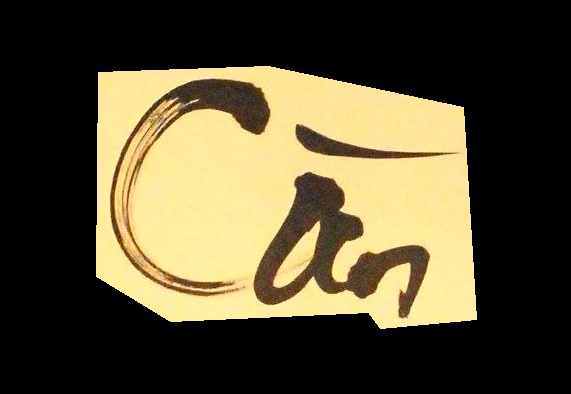 Cần